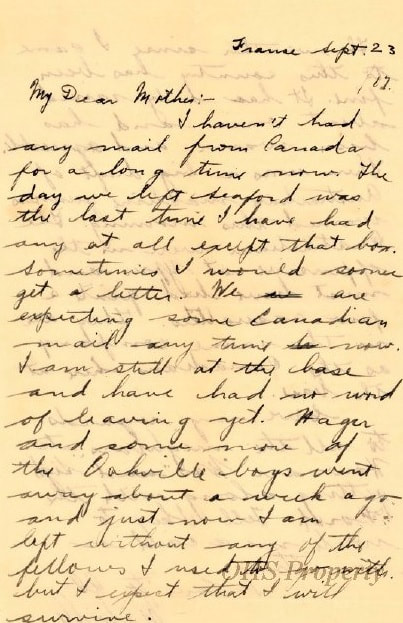 Franse Sept. 23
, 17.
My Dear Mother:-
I haven't had
any mail from Canada
for a long time now. The
day we left Seaford was
the last time I have had
any at all except that box.
Sometimes I would sooner
get a letter. We are
expecting some Canadian
mail any time now.
I am still at the base
and have had no word
of leaving yet. Hager
and some more of
the Oakville boys went
away about a week ago
and just now I am
left without any of the
fellows I used to with.
but I expect that I will
survive.
OHS Property